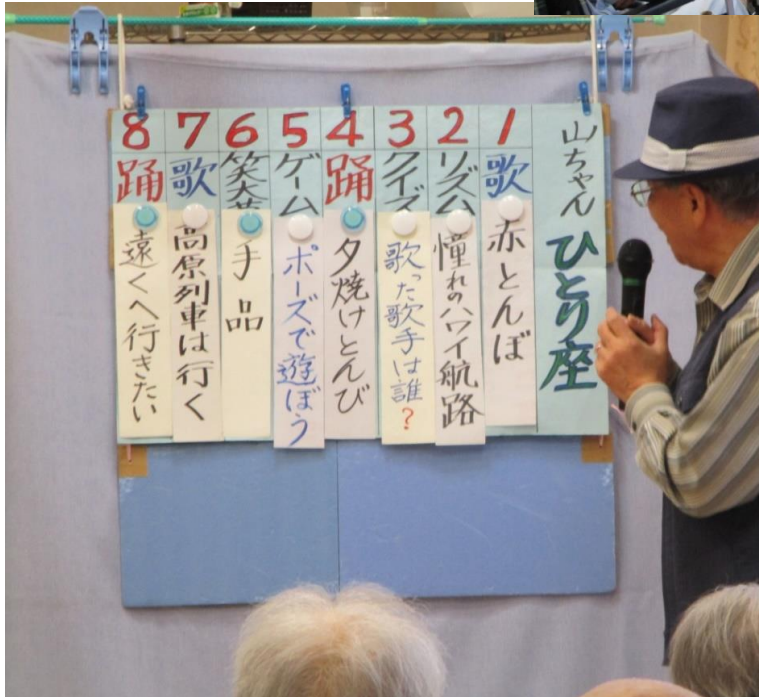 山ちゃん ひとり座
1 歌 赤とんぼ
2 リズム 憧れのハワイ航路
3 クイズ 歌った歌手は誰?
4 踊 夕焼けとんび
5 ゲーム ポーズで遊ぼう
6 手品
7 歌 高原列車は行く
8 踊 遠くへ行きたい